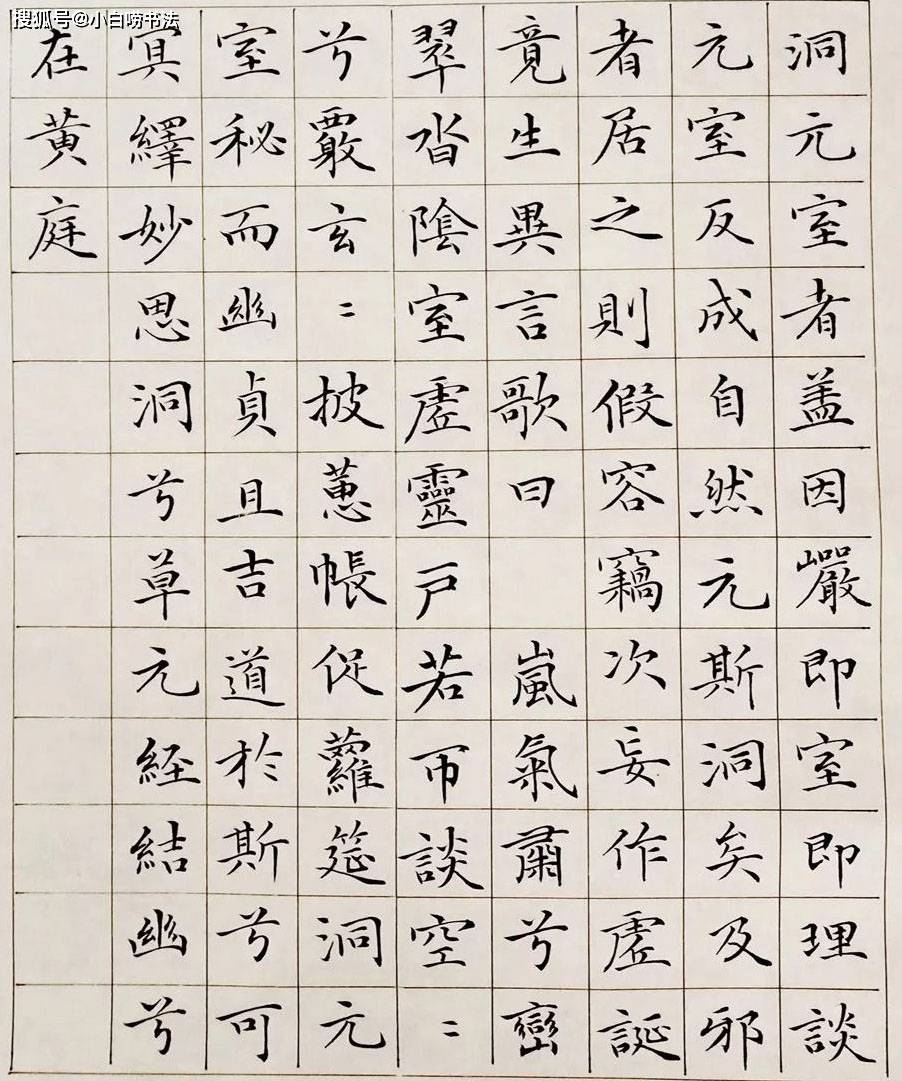 搜狐号@小白唠书法
洞元室者盖因巖即室即理談
元室反成自然元斯洞矣及邪
者居之則假容竊次妄作虛誕
竟生異言歌曰　嵐氣肅兮巒
翠沓陰室虛靈戶若帀談空〻
兮覈玄〻披蕙帳促蘿筵洞元
室秘而幽貞且吉道於斯兮可
冥繹妙思洞兮草元経結幽兮
在黄庭